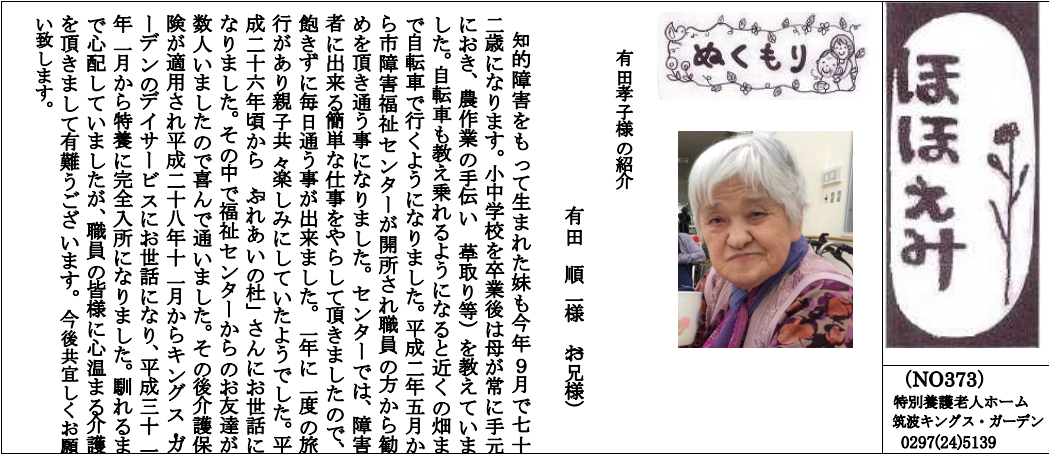 ほほえみ
（NO373）
特別養護老人ホーム
筑波キングス・ガーデン
0297(24)5139
ぬくもり
有田孝子様の紹介
有田　順一様　お兄様）
知的障害をもって生まれた妹も今年９月で七十
二歳になります。小中学校を卒業後は母が常に手元
におき、農作業の手伝い　草取り等）を教えていま
した。自転車も教え乗れるようになると近くの畑ま
で自転車で行くようになりました。平成二年五月か
ら市障害福祉センターが開所され職員の方から勧
めを頂き通う事になりました。センターでは、障害
者に出来る簡単な仕事をやらして頂きましたので、
飽きずに毎日通う事が出来ました。一年に一度の旅
行があり親子共々楽しみにしていたようでした。平
成二十六年頃から　ふれあいの杜」さんにお世話に
なりました。その中で福祉センターからのお友達が
数人いましたので喜んで通いました。その後介護保
険が適用され平成二十八年十一月からキングス・ガ
ーデンのデイサービスにお世話になり、平成三十一
年一月から特養に完全入所になりました。馴れるま
で心配していましたが、職員の皆様に心温まる介護
を頂きまして有難うございます。今後共宜しくお願
い致します。